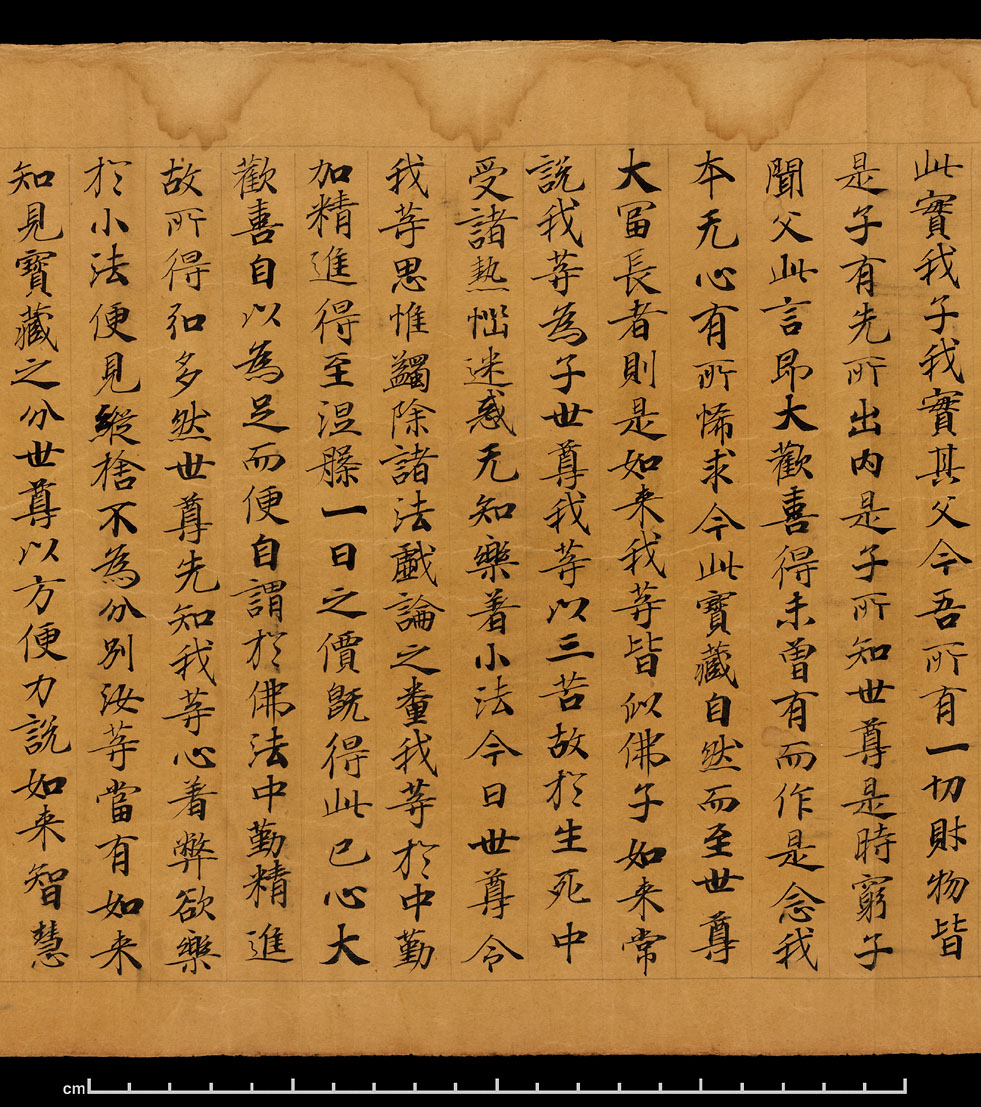 此實我子我實其父今吾所有一切財物皆
是子有先所出内是子所知世尊是時窮子
聞父此言即大歡喜得未曾有而作是念我
本无心有所悕求今此寶藏自然而至世尊
大冨長者則是如来我等皆似佛子如来常
說我等為子世尊我等以三苦故於生死中
受諸熱惱迷惑无知樂着小法今日世尊令
我等思惟蠲除諸法戱論之糞我等於中勤
加精進得至涅槃一日之價既得此已心大
歡喜自以為足而便自謂於佛法中勤精進
故所得弘多然世尊先知我等心着弊欲樂
於小法便見縱捨不為分別汝等當有如来
知見寶藏之分世尊以方便力說如来智慧
cm